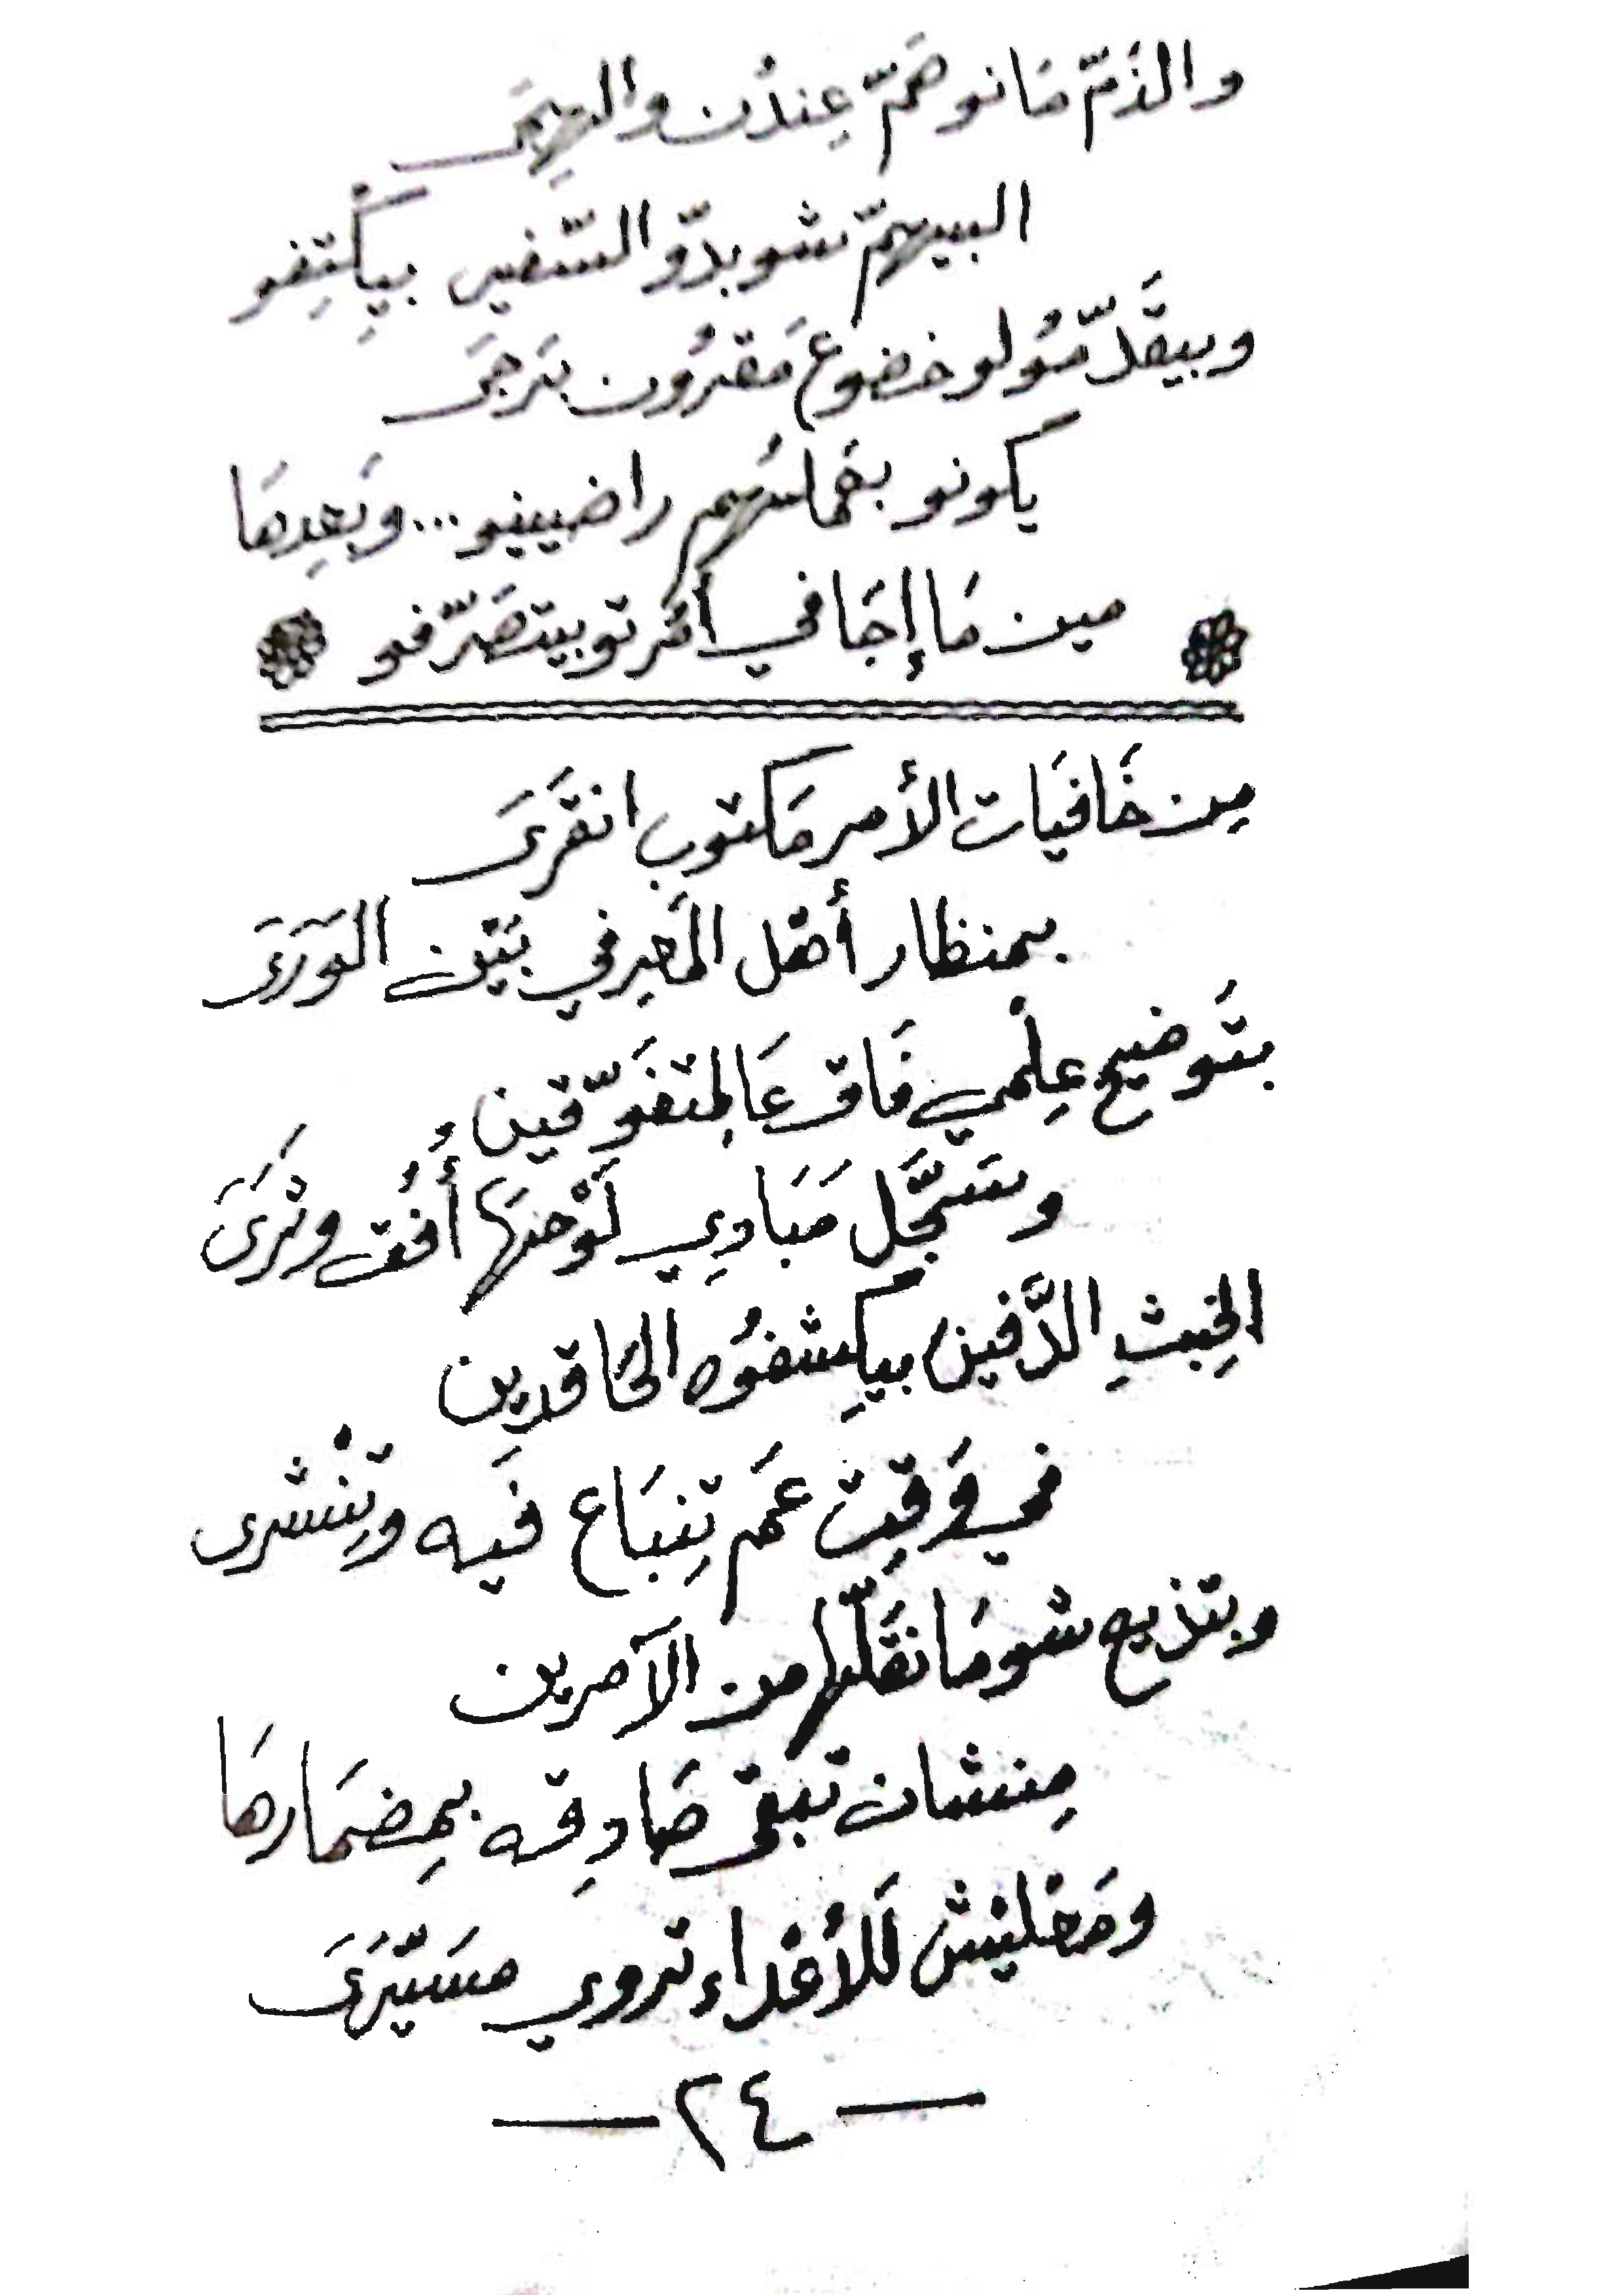 والذمّ مَانو هَمّ عِندُن والهِمَى
البيهمّ شو بدّو السّفير بيِكْتِفو
وبيقَدّمُولو خضوع مَقرُون بتَرجَى
يكونو بخماسُهم راضيينو...وبَعِدهَا
مين مَا إجَا في أمرتو بيتصَرّفو
مِن خَافيَات الأمر مَكتوب انقَرَى
بمنظار أهْل المَعِرفي بَيْن الوَرَى
بتَوضيح عِلْمي فَاق عَالمتفَوّقين
وسَجَّل مَبَادِي لَوْحتهَا أُفُق وتْرَى
الخِبثِ الدَّفين بيِكشفُوه الحَاقدِين
في وَقِت عَم تِنبَاع فيه وتِنْشرى
وبتذيع شو مَا نقَلّها من الآمرين
مِنشان تبقى صَادِقه بمِضمَارهَا
ومَعْليْش لَلأعْداء تروي مسَيّرَى
— ٢٤ —